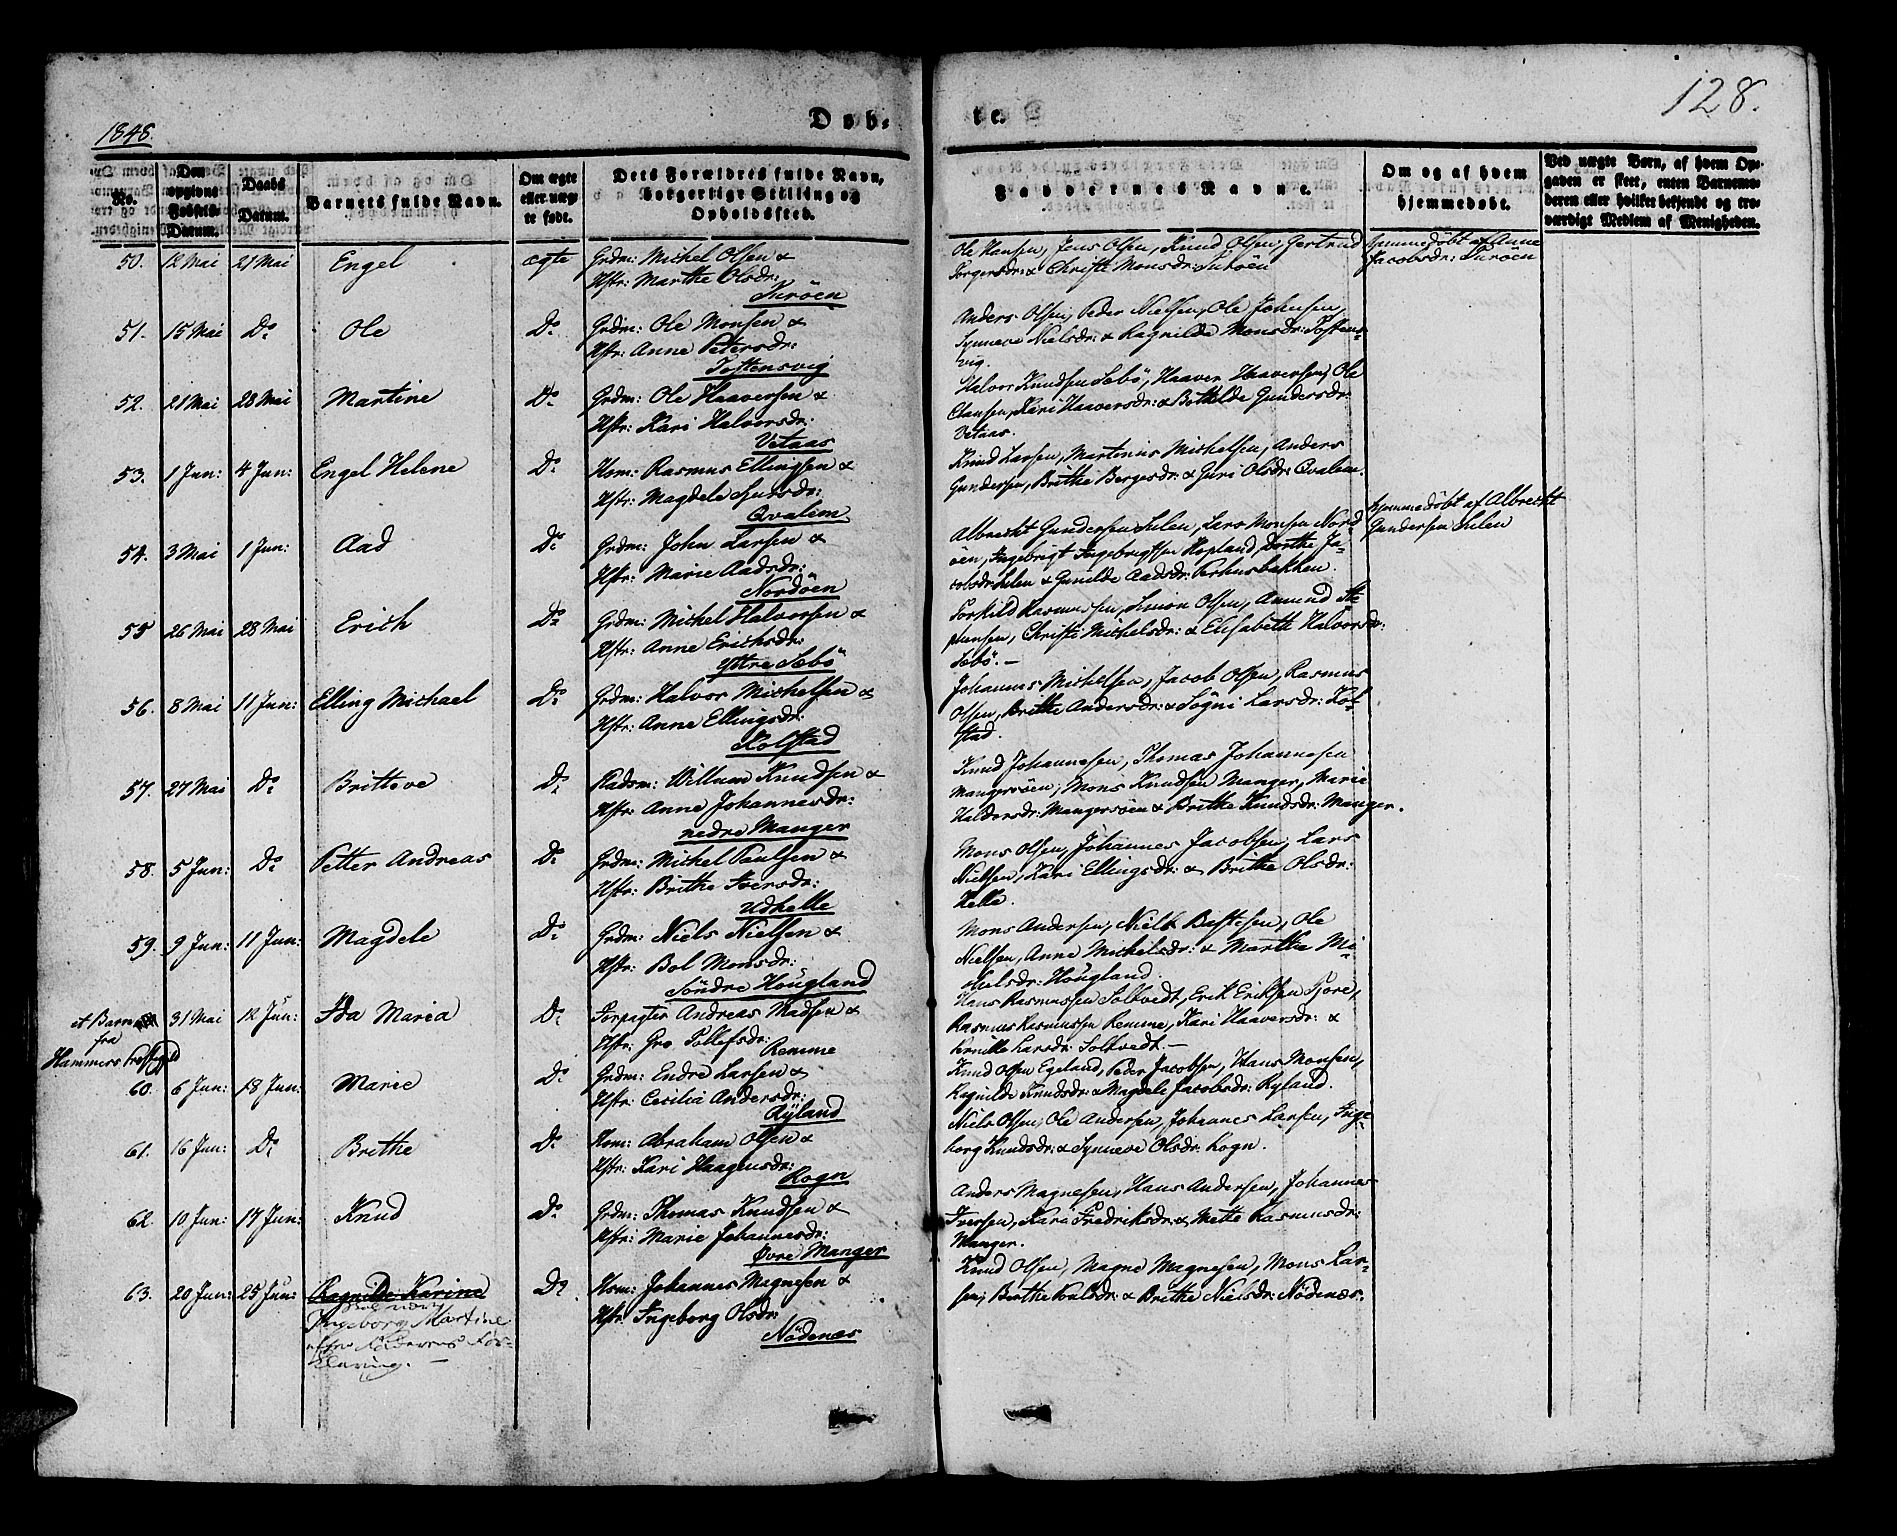 1848.
Døb-
te.
128.
No.
Den opgivne Fødsels-Datum.
Daabs Datum.
Barnets fulde Navn.
Om ægte eller uægte født.
Dets Forældres fulde Navn, borgerlige Stilling og Opholdssted.
Faddernes Navne.
Om og af hvem hjemmedøbt.
Ved uægte Børn, af hvem Op-
gaven er skeet, enten Barnemo-
deren eller hvilket bekjendt og tro-
værdigt Medlem af Menigheden.
50. 12 Mai 21 Mai Engel ægte Grdm: Michel Olsen &
Hstr: Marthe Olsdr:
Turöen
Ole Hansen, Jens Olsen, Knud Olsen, Gertrud
Torgersdr: & Christi Monsdr: Turöen
hjemmedöbt af Anne
Jacobsdr: Turöen
51. 15 Mai Do Ole Do Grdm: Ole Monsen &
Hstr: Anne Petersdr:
Tostensvig
Anders Olsen, Peder Nielsen, Ole Johnsen,
Synneve Nielsdr: & Ragnilde Monsdr: Tostens-
vig.
52. 21 Mai 28 Mai Martine Do Grdm: Ole Haaversen &
Hstr: Kari Halvorsdr:
Vetaas
Halvor Knudsen Sebö, Haaver Haaversen, Ole
Clausen, Kari Haaversdr: & Bothilde Gundersdr:
Vetaas.
53. 1 Jun: 4 Jun: Engel Helene Do Hsm: Rasmus Ellingsen &
Hstr: Magdele Sjursdr:
Qvalem
Knud Larsen, Martinus Michelsen, Anders
Gundersen, Brithe Bergesdr: & Guri Olsdr: Qvalem.
54. 3 Mai 1 Jun: Aad Do Grdm: John Larsen &
Hstr: Marie Aadsdr:
Nordöen
Albrecht Gundersen Sulen, Lars Monsen Nord-
öen, Ingebrigt Ingebrigtsen Hopland, Dorthe Ja-
cobsdr: Sulen & Gunilde Aadsdr:
hjemmedöbt af Albrecht
Gundersen Sulen
55 26 Mai 28 Mai Erich Do Grdm: Michel Halvorsen &
Hstr: Anne Erichsdr:
Yttre Sæbö
Torkild Rasmussen, Simon Olsen, Amund Ste-
phensen, Christi Michelsdr: & Elisabeth Halvorsdr:
Sæbö. —
56. 8 Mai 11 Jun: Elling Michael Do Grdm: Halvor Michelsen &
Hstr: Anne Ellingsdr:
Kolstad
Johannes Michelsen, Jacob Olsen, Rasmus
Olsen, Brithe Andersdr: & Sögni Larsdr: Kol-
stad.
57. 27 Mai Do Brittove Do Radsm: Willum Knudsen &
Hstr: Anne Johannesdr:
nedre Manger
Knud Johannesen, Thomas Johannesen
Mangersöen, Mons Knudsen Manger, Marie
Haldorsdr: Mangersöen & Brithe Knudsdr: Manger.
58. 5 Jun: Do Petter Andreas Do Grdm: Michel Paulsen &
Hstr: Brithe Iversdr:
Udhelle
Mons Olsen, Johannes Jacobsen, Lars
Nielsen, Kari Ellingsdr: & Brithe Olsdr:
Helle.
59. 9 Jun: 11 Jun: Magdele Do Grdm: Niels Nielsen &
Hstr: Bol Monsdr:
Söndre Höugland
Mons Andersen, Niels Bastesen, Ole
Nielsen, Anne Michelsdr: & Marthe Mi-
chelsdr: Höugland.
et Barn
fra
Hammers Præstegjeld
31 Mai 12 Jun: Ida Maria Do Forpagter Andreas Madsen &
Hstr: Gro Tollefsdr:
Remme
Hans Rasmussen Soltvedt, Erik Eriksen Fjore,
Rasmus Rasmussen Remme, Kari Haaversdr: &
Pernille Larsdr: Soltvedt. —
60. 6 Jun: 18 Jun: Marie Do Grdm: Endre Larsen &
Hstr: Cecilia Andersdr:
Ryland
Knud Olsen Egeland, Peder Jacobsen, Hans Monsen,
Ragnilde Knudsdr: & Magdele Jacobsdr: Ryland.
61. 16 Jun: Do Brithe Do Hsm: Abraham Olsen &
Hstr: Kari Haagensdr:
Rogn
Niels Olsen, Ole Andersen, Johannes Larsen, Inge-
borg Knudsdr: & Synneve Olsdr: Rogn.
62. 10 Jun: 17 Jun: Knud Do Grdm: Thomas Knudsen &
Hstr: Marie Johannesdr:
Øvre Manger
Anders Magnesen, Hans Andersen, Johannes
Iversen, Kari Fredriksdr: & Mette Rasmusdr:
Manger.
63. 20 Jun: 25 Jun: Ragnilde Karine Do Hsm: Johannes Magnesen &
Ingeborg Martine
efter Faderens For-
klaring. —
Hstr: Ingeborg Olsdr:
Nödenæs
Knud Olsen, Magne Magnesen, Mons Lar-
sen, Berthe Poulsdr: & Brithe Nielsdr: Nödenæs.